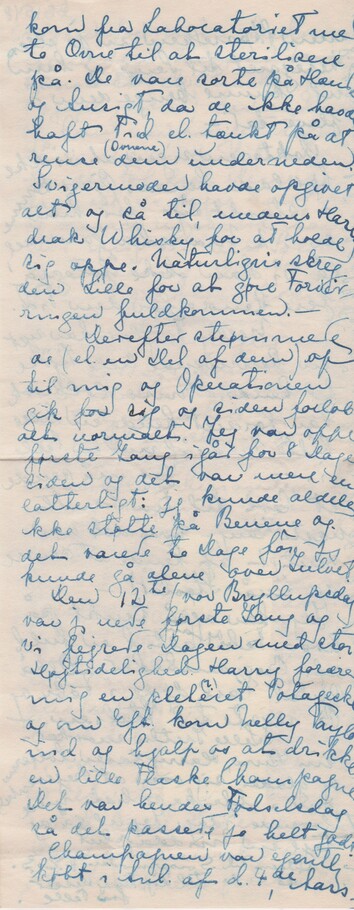 kom fra Laboratoriet me
to Ovne til at sterilisere
på. De vare sorte på Hænd
og Ansigt, da de ikke havd
haft Tid el. tænkt på at
(Ovnene)
rense dem underneden.
Svigermoder havde opgivet
alt og så til, medens Harr
drak Whisky for at holde
sig oppe. Naturligvis skreg
den Lille for at gøre Forvir-
ringen fuldkommen. —
Derefter stemmede
de (el. en Del af dem) op
til mig og Operationen
gik for sig og siden forløb
alt normalt. Jeg var oppe
første Gang igår for 8 Dage
siden og det var mere en
latterligt: jeg kunde aldele
ikke støtte på Benene og
det varede to Dage før jeg
kunde gå alene over Gulvet.
Den 12te, vor Bryllupsdag
var j. nede første Gang og
vi fejrede Dagen med stor
Højtidelighed. Harry forære
mig en pletéret (?) Potageske
og om Eft. kom Nelly Taylo
ind og hjalp os at drikke
en lille Flaske Champagne
Det var hendes Fødselsdag
så det passede jo helt godt
Champagnen var egentl.
købt i Anl. af d. 4de, Lars